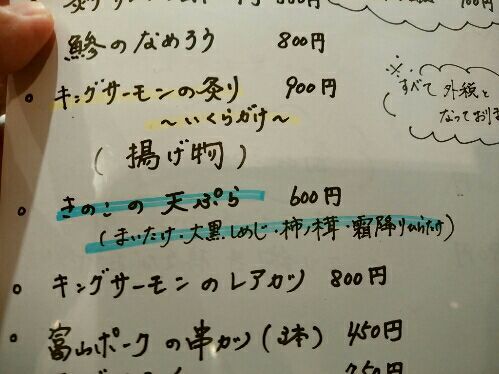 鯵のなめろう 800円
。キングサーモンの炙り 900円
~いくらがけ~
※すべて外税と
なっており
(揚げ物)
。きのこの天ぷら 600円
(まいたけ・大黒しめじ・柿ノ木茸・霜降りひらたけ)
。キングサーモンのレアカツ 800円
。富山ポークの串カツ(3本) 450円